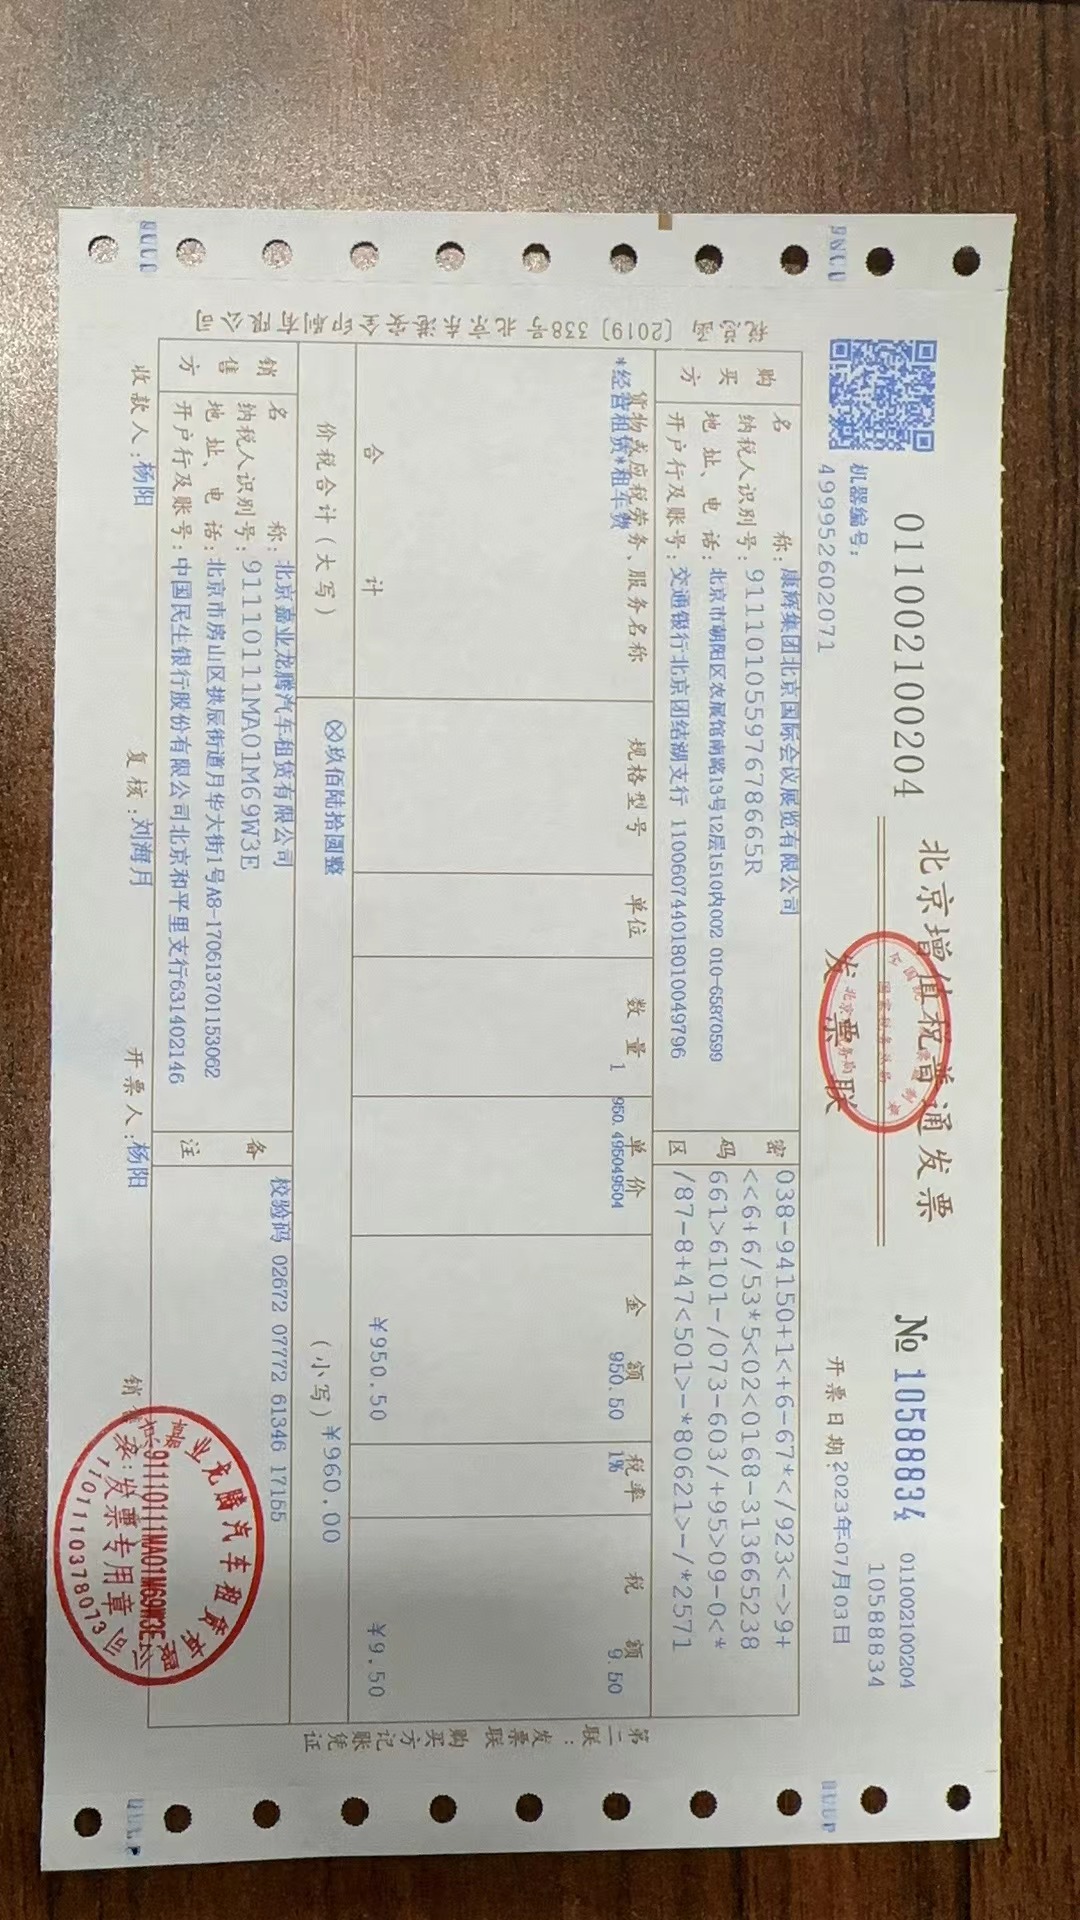 011002100204
北京增值税普通发票
发票联
№ 10588834
011002100204
10588834
机器编号:
499952602071
开票日期:2023年07月03日
购买方
名 称:康辉集团北京国际会议展览有限公司
纳税人识别号:91110105597678665R
地 址、电 话:北京市朝阳区农展馆南路13号12层1510内002 010-65870599
开户行及账号:交通银行北京团结湖支行 110060744018010049796
密码区
038-94150+1<+6-67*</923<->9+
<<6+6/53*5<02<0168-313665238
661>6101-/073-603/+95>09-0<*
/87-8+47<501>-*80621>-/*2571
货物或应税劳务、服务名称 规格型号 单位 数 量 单 价 金 额 税率 税 额
*经营租赁*租车费 1 950.495049504 950.50 1% 9.50
合 计 ¥950.50 ¥9.50
价税合计(大写) ⊗玖佰陆拾圆整 (小写)¥960.00
销售方
名 称:北京嘉业龙腾汽车租赁有限公司
纳税人识别号:91110111MA01M69W3E
地 址、电 话:北京市房山区拱辰街道月华大街1号A8-17061370115306​2
开户行及账号:中国民生银行股份有限公司北京和平里支行631402146
备注
校验码 02672 07772 61346 17155
收款人:杨阳 复核:刘海月 开票人:杨阳
91110111MA01M69W3E
发票专用章
1101110378073
第二联:发票联 购买方记账凭证